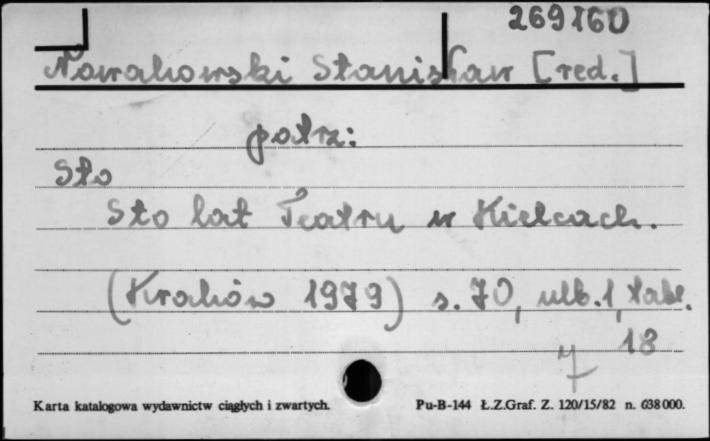 269760
Nowakowski Stanisław [red.]
patrz:
Sto
Sto lat Teatru w Kielcach.
(Kraków 1979) s. 70, nlb. 1, tabl.
18
7
Karta katalogowa wydawnictw ciągłych i zwartych. Pu-B-144 Ł.Z.Graf. Z. 120/15/82 n. 638000.